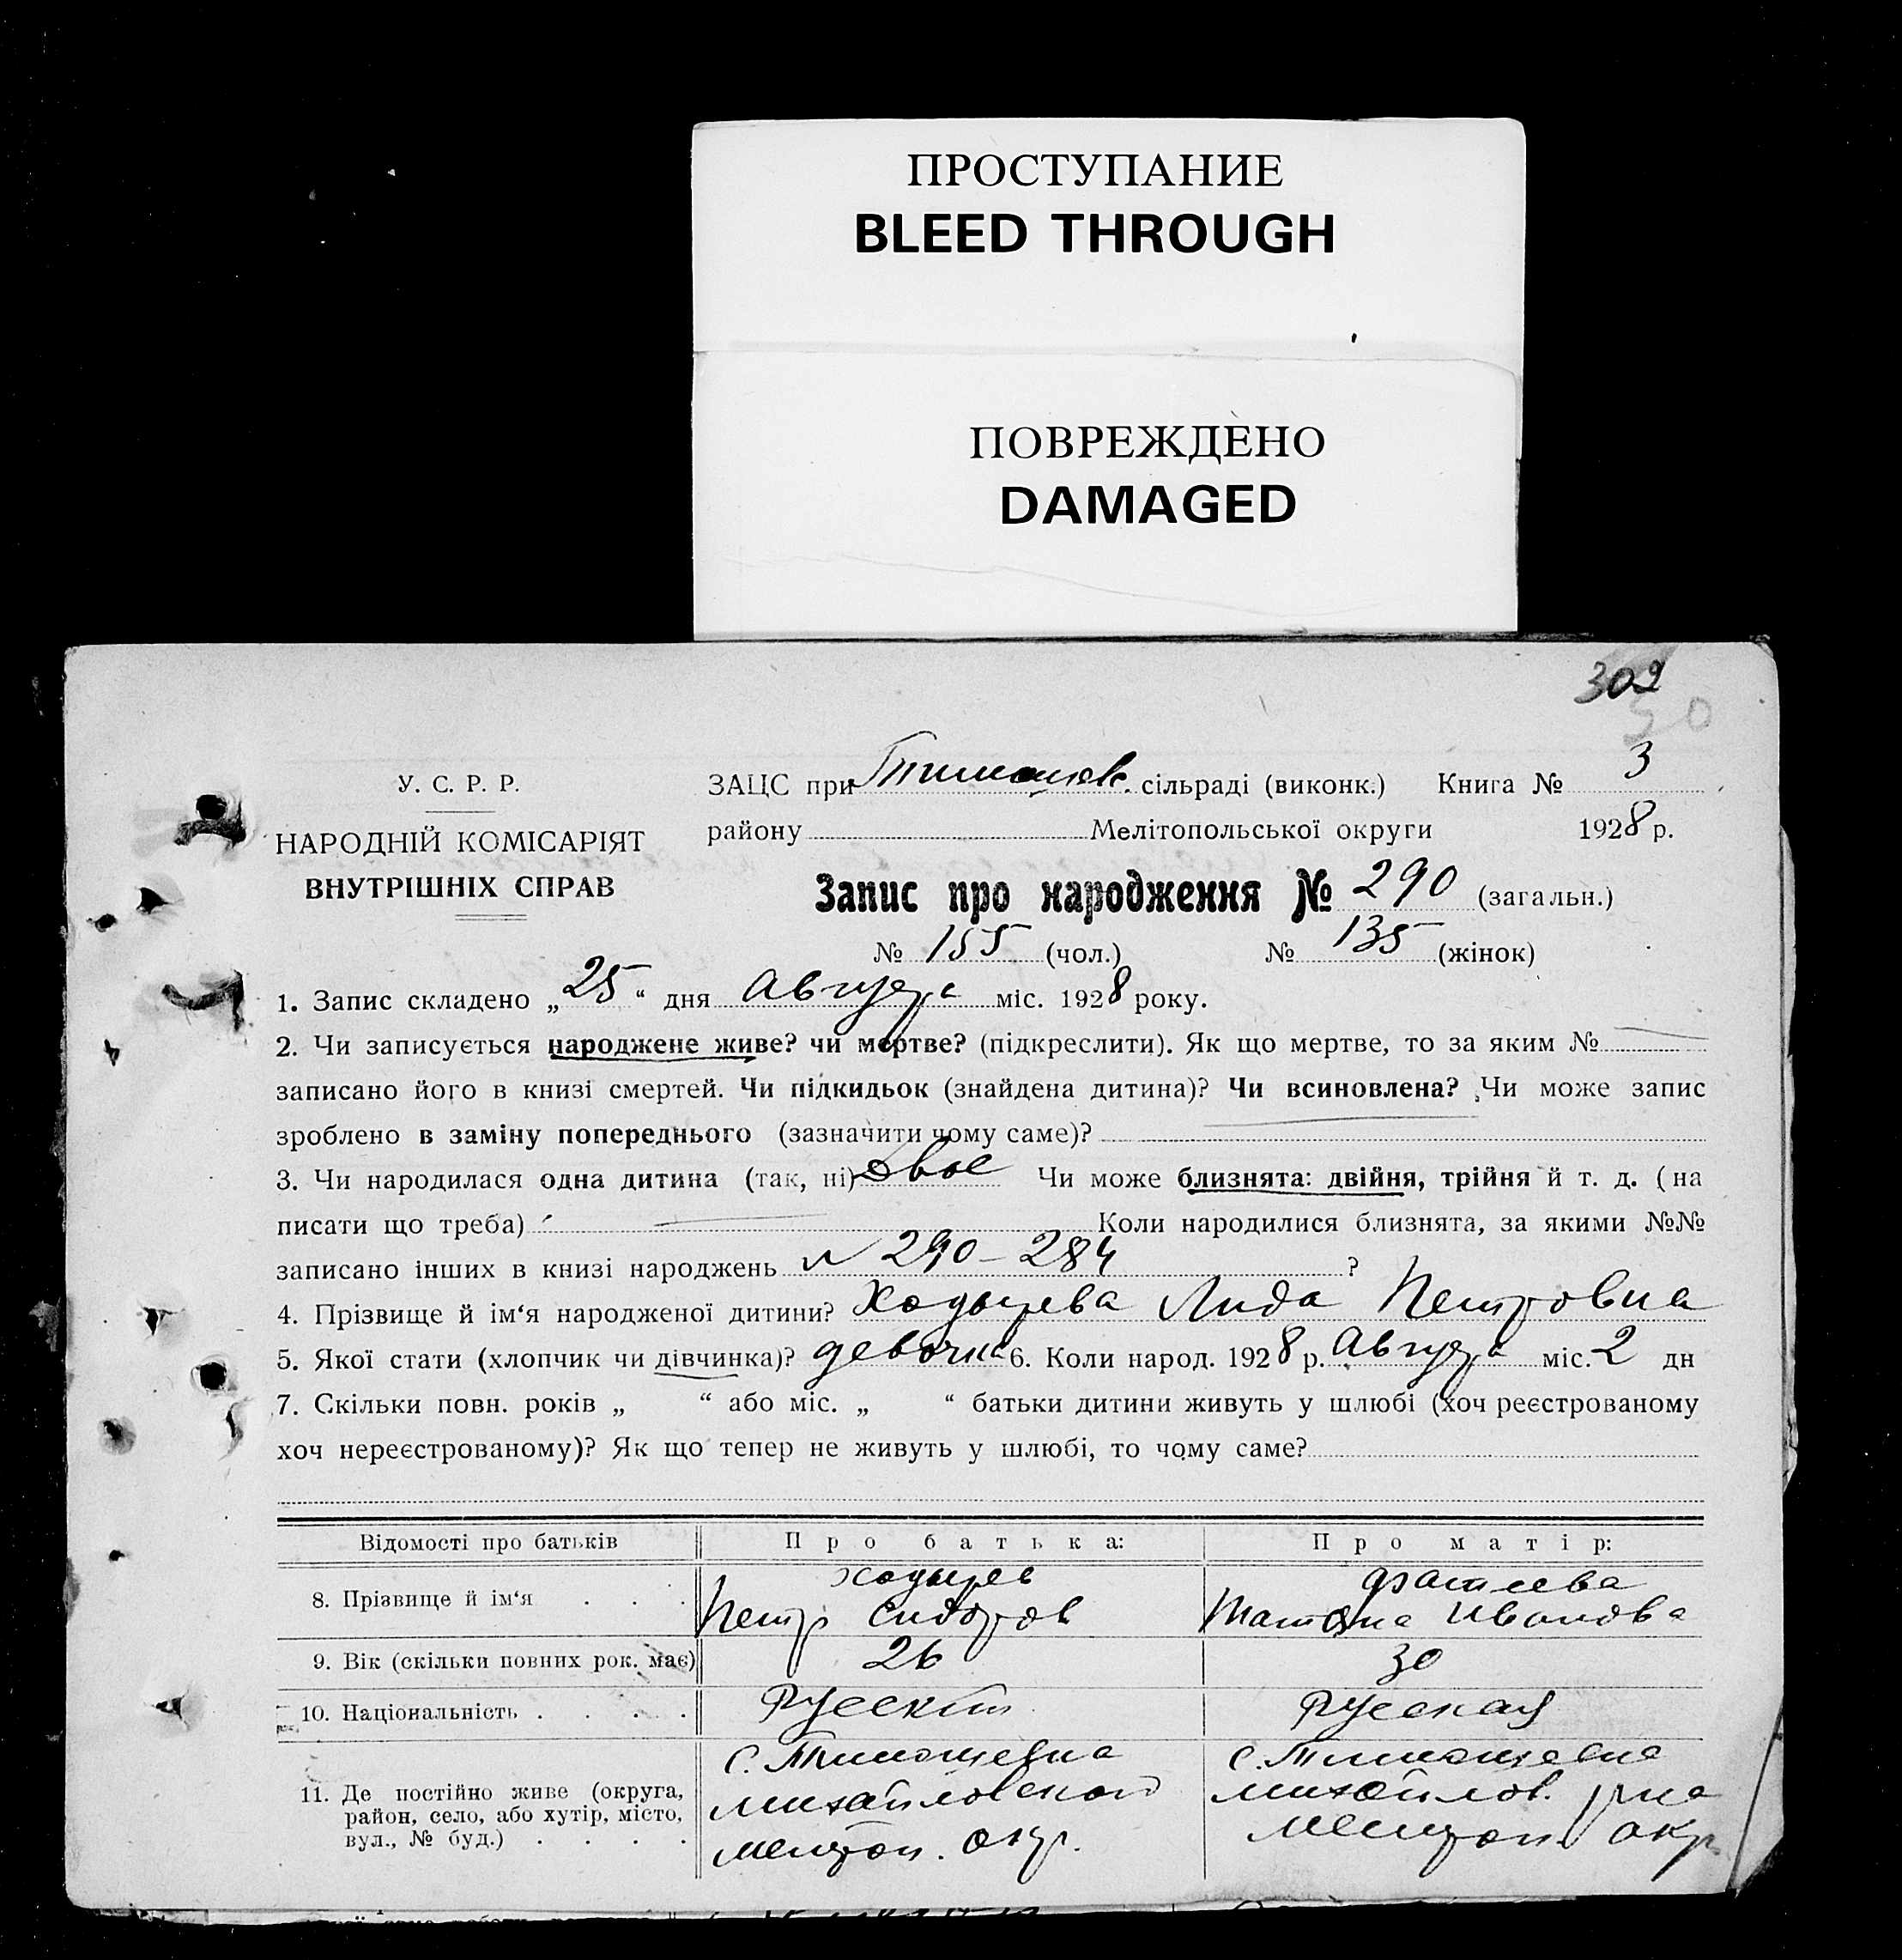 ПРОСТУПАНИЕ
BLEED THROUGH
ПОВРЕЖДЕНО
DAMAGED
302
50
У. С. Р. Р.
ЗАЦС при Тимошовс. сільраді (виконк.) Книга № 3
району Мелітопольської округи 1928 р.
НАРОДНІЙ КОМІСАРІЯТ
ВНУТРІШНІХ СПРАВ
Запис про народження № 290 (загальн.)
№ 155 (чол.) № 135 (жінок)
1. Запис складено „25“ дня Августа міс. 1928 року.
2. Чи записується народжене живе? чи мертве? (підкреслити). Як що мертве, то за яким №
записано його в книзі смертей. Чи підкидьок (знайдена дитина)? Чи всиновлена? Чи може запис
зроблено в заміну попереднього (зазначити чому саме)?
3. Чи народилася одна дитина (так, ні) двое Чи може близнята: двійня, трійня й т. д. (на
писати що треба) Коли народилися близнята, за якими №№
записано інших в книзі народжень № 290-284 ?
4. Прізвище й ім‘я народженої дитини? Ходырева Лида Петровна
5. Якої стати (хлопчик чи дівчинка)? девочка 6. Коли народ. 1928 р. Августа міс. 2 дн
7. Скільки повн. років „ “ або міс. „ “ батьки дитини живуть у шлюбі (хоч реєстрованому
хоч нереєстрованому)? Як що тепер не живуть у шлюбі, то чому саме?
Відомості про батьків Про батька: Про матір:
8. Прізвище й ім‘я . . . Ходырев
Петр Сидоров
Фатеева
Татяна Иванова
9. Вік (скільки повних рок. має) 26 30
10. Національність . . . . Русский Русская
11. Де постійно живе (округа,
район, село, або хутір, місто,
вул., № буд.) . . . .
с. Тимошевка
Михайловской
Мелитоп. окр.
с. Тимошевка
Михайлов. р-на
Мелитоп. окр.